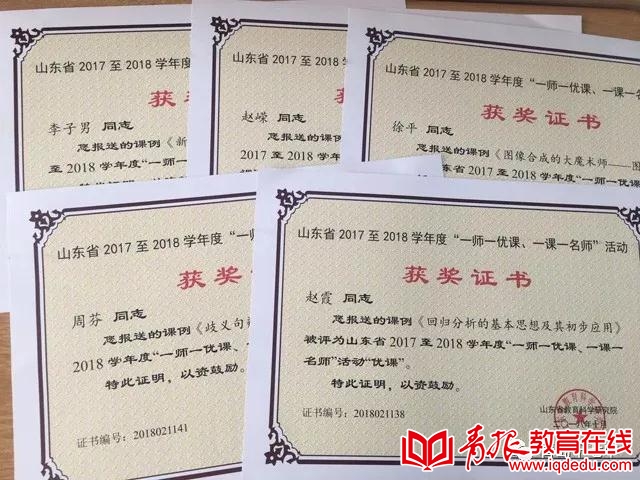 山东省 2017 至 2018 学年度 “一
获奖
李子男 同志
您报送的课例《新
至 2018 学年度“一师一
山东省 2017 至 2018 学年度
获
赵嵘 同志
您报送的课例
山东省 2017 至 2018 学年度 “一师一优课、一课一名
获奖证书
徐平 同志
您报送的课例《图像合成的大魔术师——图
东省 2017 至 2018 学年度“一师一优课
山东省 2017 至 2018 学年度 “一师
获奖
周芬 同志
您报送的课例《歧义句
2018 学年度“一师一优课、
特此证明，以资鼓励。
证书编号：2018021141
山东省 2017 至 2018 学年度 “一师一优课、一课一名师” 活动
获奖证书
赵霞 同志
您报送的课例《回归分析的基本思想及其初步应用》
被评为山东省 2017 至 2018 学年度“一师一优课、一课一
名师”活动“优课”。
特此证明，以资鼓励。
山东省教育科学研究院
二〇一八年十月
证书编号：2018021138
青报教育在线
www.iqdedu.com